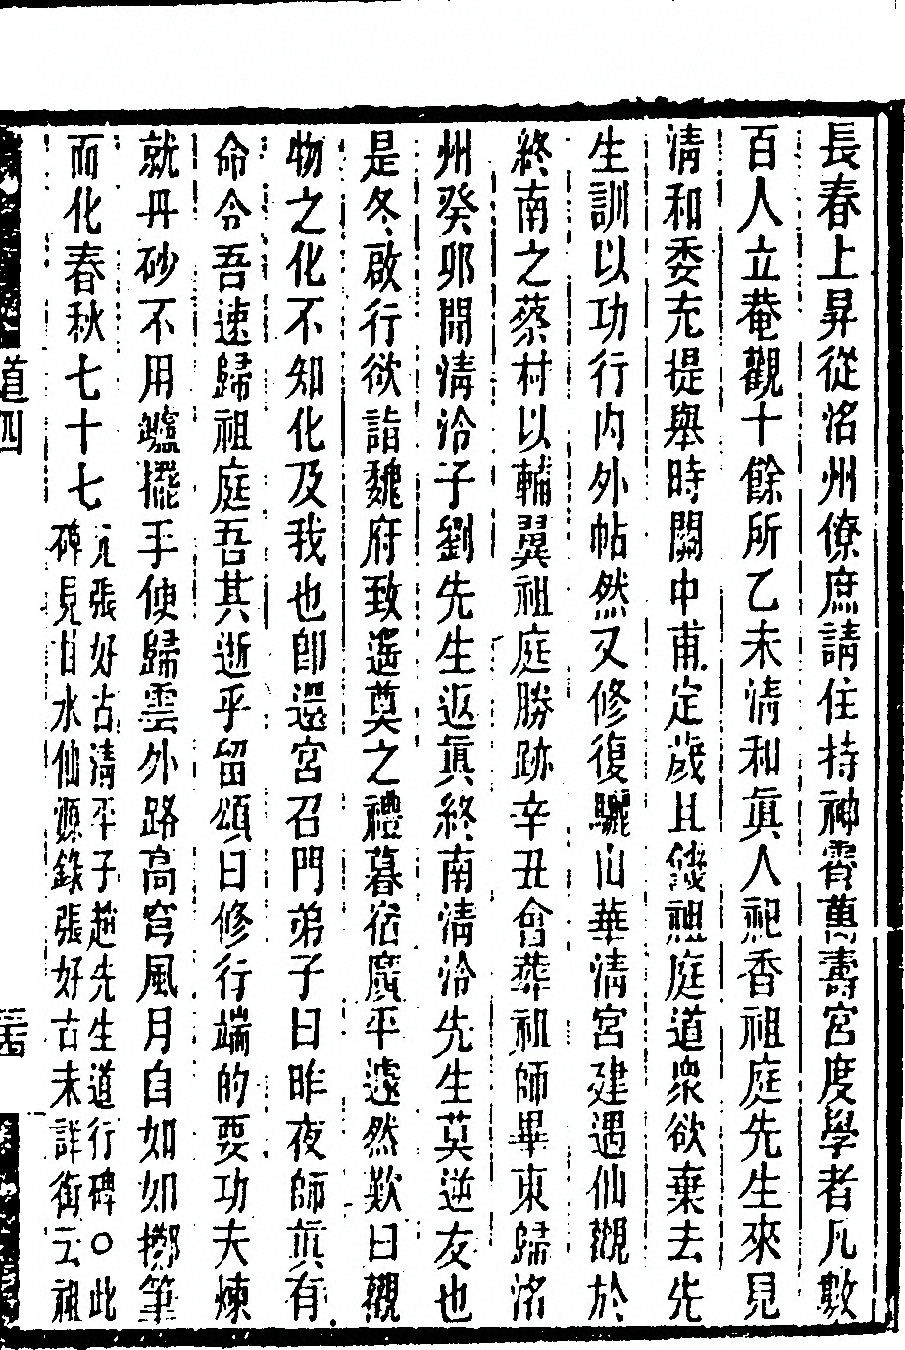 長春上昇從洺州僚庶請住持神霄萬壽宮度學者凡數
百人立菴觀十餘所乙未清和眞人祀香祖庭先生來見
清和委充提舉時關中甫定歲且饑祖庭道衆欲棄去先
生訓以功行內外帖然又修復驪山華清宮建遇仙觀於
終南之蔡村以輔翼祖庭勝跡辛丑會葬祖師畢東歸洺
州癸卯開清泠子劉先生返眞終南清泠先生莫逆友也
是冬啟行欲詣魏府致遙奠之禮暮宿廣平遽然歎曰觀
物之化不知化及我也卽還宮召門弟子曰昨夜師眞有
命令吾速歸祖庭吾其逝乎留頌曰修行端的要功夫煉
就丹砂不用爐擺手使歸雲外路高穹風月自如如擲筆
而化春秋七十七
元張好古清平子趙先生道行碑○此
碑見甘水仙源錄張好古未詳銜云祖
道四